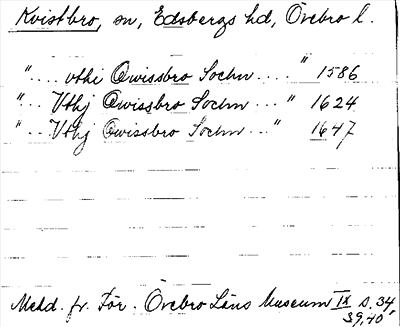 Kvistbro, sn, Edsbergs hd, Örebro l.
"... vthi Qwissbro Sochn ...." 1586
"... Vthj Qwissbro Sochn ..." 1624
"... Vthj Qwissbro Sochn ..." 1647
Medd. fr. För. Örebro Läns Museum IX s. 34,
39, 40